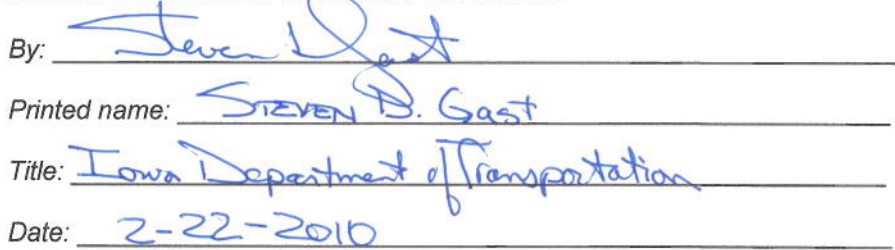 By: Steven D Gast
Printed name: STEVEN B. Gast
Title: Iowa Department of Transportation
Date: 2-22-2010